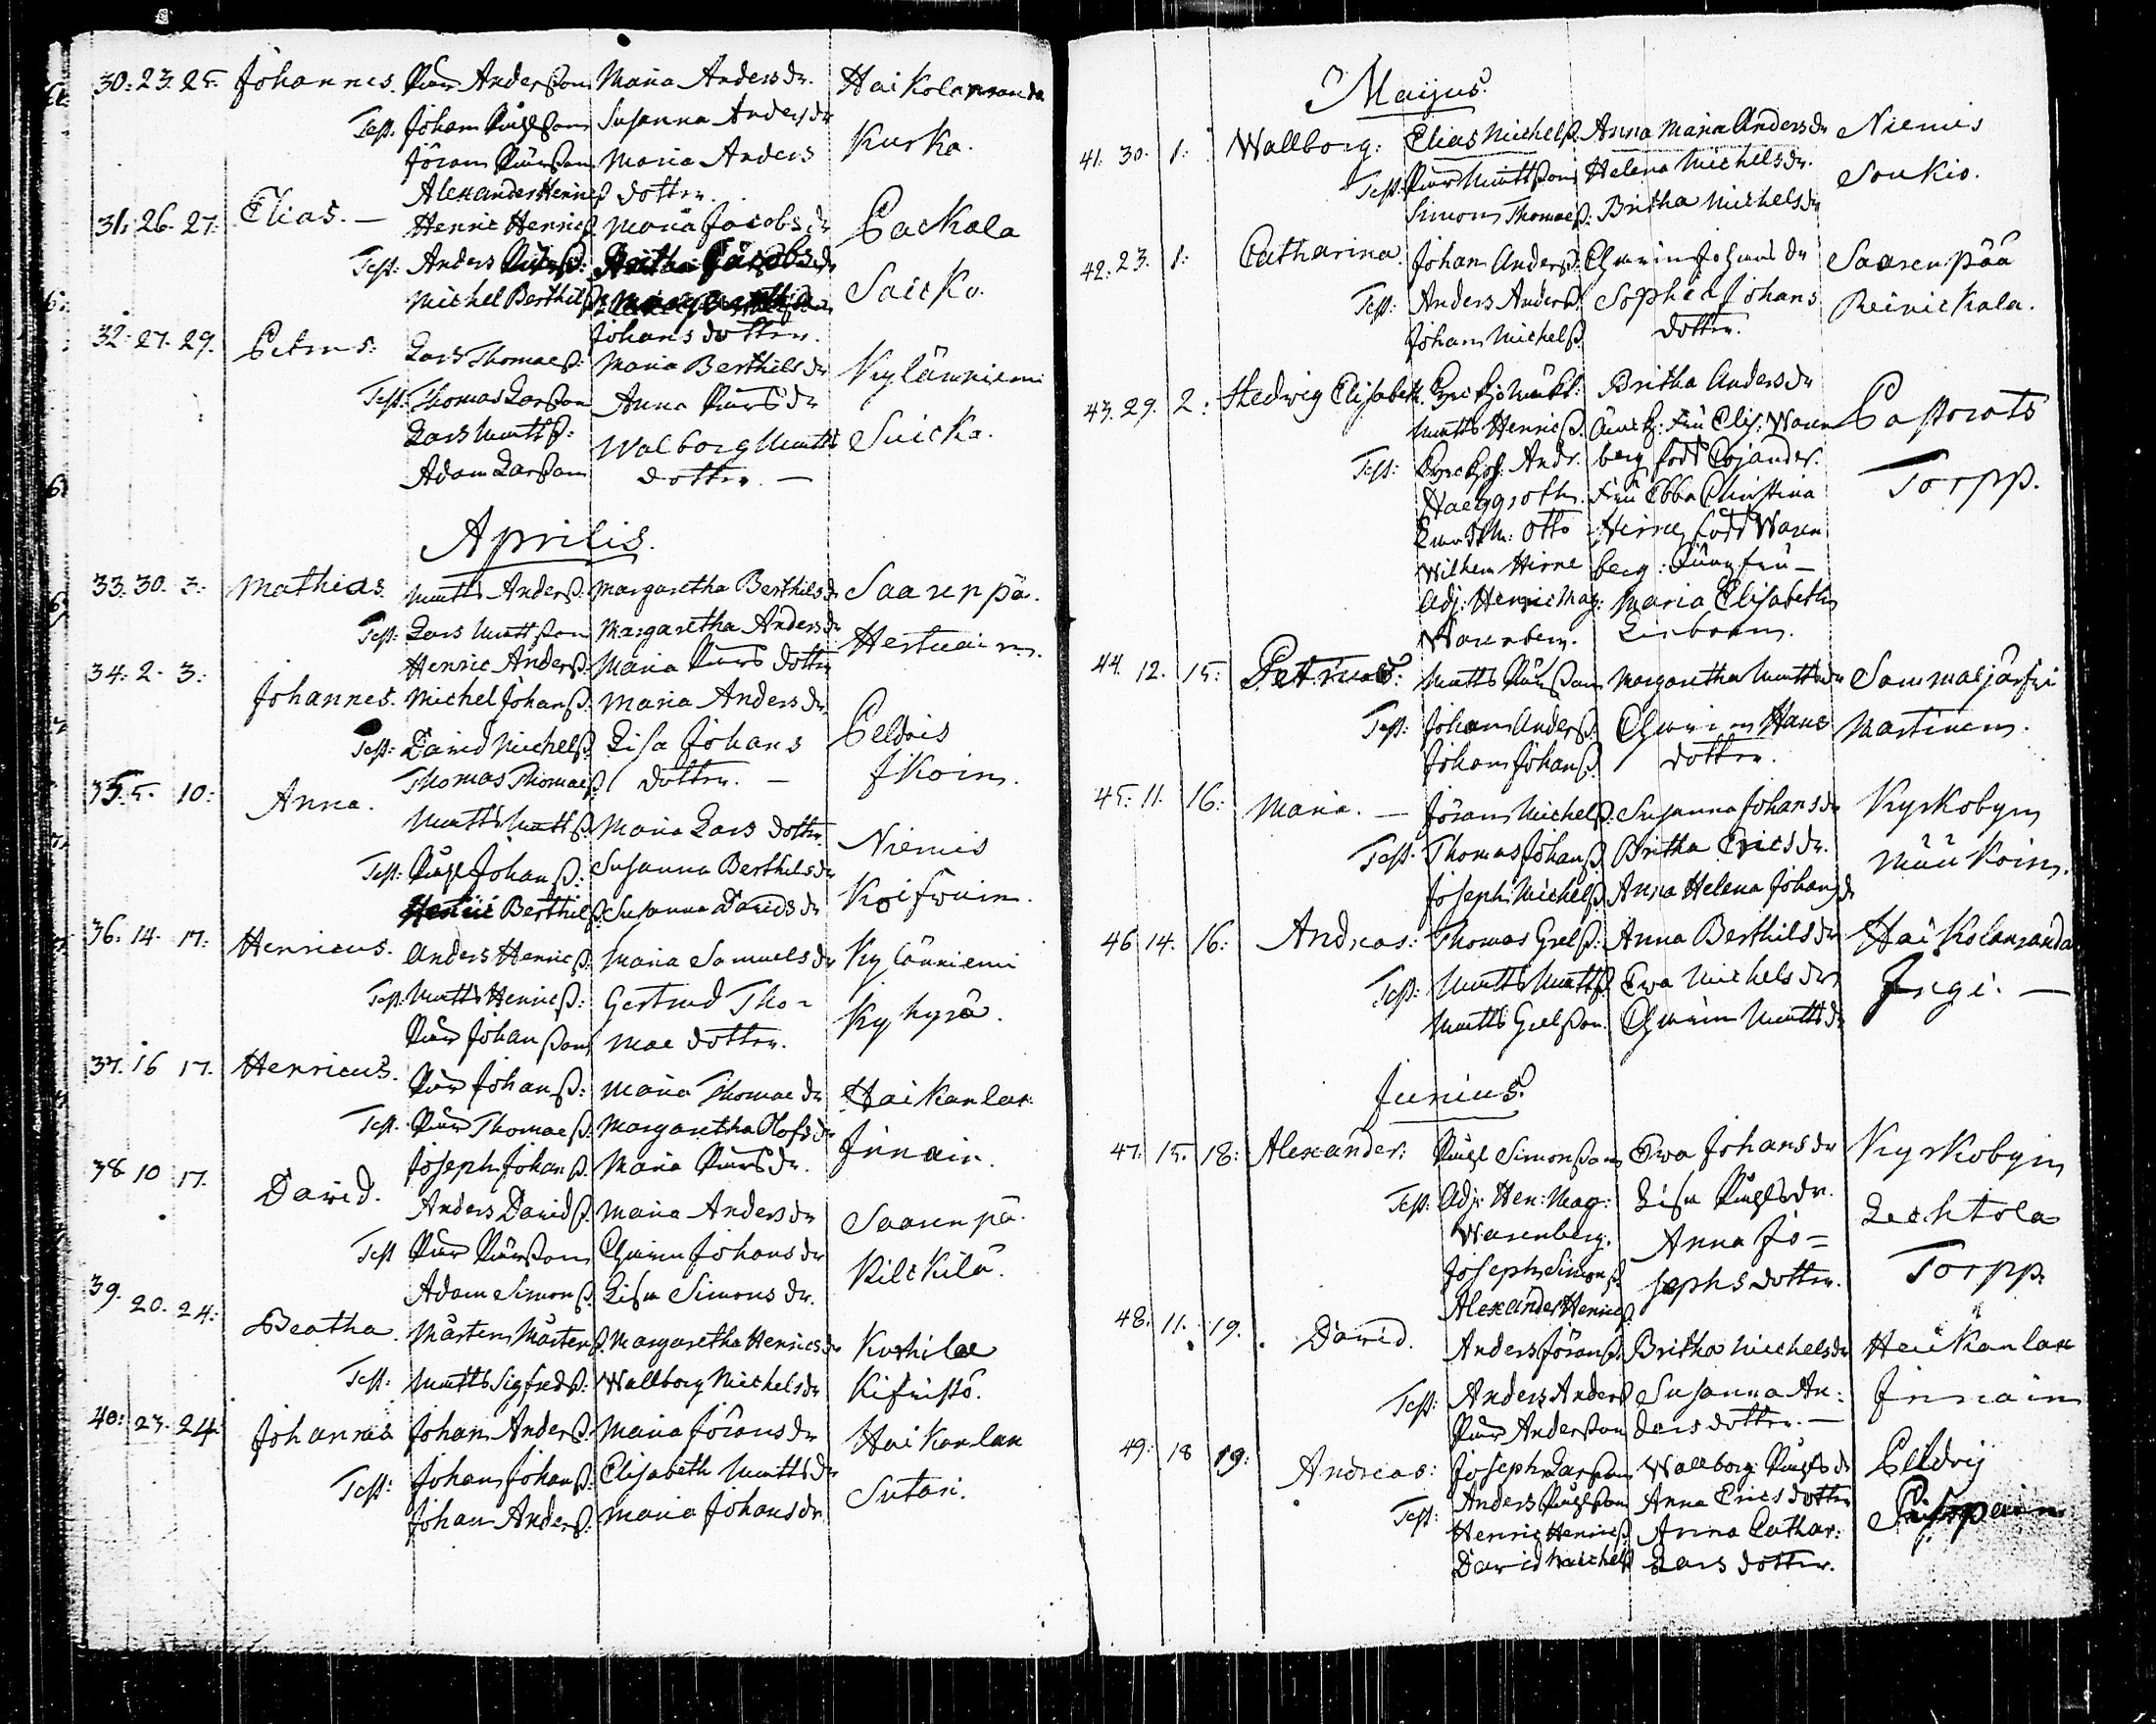 30: 23. 25. Johannes. Pär Anderßon Maria Anders dr. Haikolanranda
Test. Johan Pålßon Susanna Anders dr Kurka.
Jöran Pärßon Maria Anders
Alexander Henricß dotter.
31: 26. 27: Elias. — Henric Henricß Maria Jacobs dr Packala
Test: Anders Pärß: Saicko.
Michel Berthilß:
Johans dotter.
32: 27. 29. Petrus: Lars Thomaeß: Maria Berthils dr Kylänniemi
Test: Thomas Larßon Anna Pärs dr Suicka.
Lars Mattß: Walborg Matts
Adam Larßon dotter. —
Aprilis.
33. 30. 3: Mathias. Matts Anderß: Margaretha Berthils dr Saarenpä.
Test: Lars Mattßon Margaretha Anders dr
Henric Anderß: Maria Pärs dotter
34. 2. 3: Johannes. Michel Johanß: Maria Anders dr Peldois
Test: David Michelß: Lisa Johans Jkoin.
Thomas Thomaeß dotter. —
35. 5. 10: Anna. Matts Mattß: Maria Lars dotter. Niemis
Test: Påhl Johanß: Susanna Berthils dr
Henric Berthilß: Susanna Davids dr
36. 14. 17: Henricus. Anders Henricß: Maria Samuels dr Kylänniemi
Test: Matts Henricß: Gertrud Tho- Kyhyrä.
Pär Johanßon mae dotter.
37. 16 17. Henricus. Pär Johanß: Maria Thomae dr Haikanlax.
Test. Pär Thomaeß: Margaretha Olofs dr Jnnain.
Joseph Johanß. Maria Pärs dr.
38 10 17. David. Anders Davidß. Maria Anders dr Saarenpä.
Test Pär Pärßon Catharin Johans dr Kilckilä.
Adam Simonß. Lisa Simons dr.
39. 20. 24: Beatha. Mårten Mårtenß. Margaretha Henrics dr Kothilae
Test: Matts Sigfredß: Wallborg Michels dr
40: 23. 24. Johannes Johan Anderß: Maria Jörans dr Haikanlax
Test: Johan Johanß: Elisabeth Matts dr Sutari.
Johan Anderß: Maria Johans dr
Maijus.
41. 30. 1: Wallborg: Elias Michelß. Anna Maria Anders dr Niemis
Test: Pär Mattßon Helena Michels dr. Soukio.
Simon Thomaeß: Britha Michels dr
42: 23. 1: Catharina. Johan Anderß: Catharin Johans dr Saarenpää
Test: Anders Anderß: Sophia Johans Reinickala.
Johan Michelß. dotter.
43. 29. 2: Hedwig Elisabeth. Britha Anders dr Pastorats
Matts Henricß. Fru Elis. Waren Torpp.
Test: Andr. berg född Cojander.
Haeggroth. Fru Ebba Christina
Otto Hirne född Waren
Wilhem Hirne berg: Jungfru —
Adj: Henric Mag: Maria Elisabeth
Warenberg.
44. 12. 15: Petrus: Matts Pärßon Margaretha Matts dr Sammaljärfvi
Test: Johan Anderß: Catharin Hans Martinen.
Johan Johanß. dotter.
45: 11. 16: Maria. — Jöran Michelß. Susanna Johans dr Kyrkobyn
Test. Thomas Johanß. Britha Erics dr. Muukoin.
Joseph Michelß Anna Helena Johans dr
46 14. 16: Andreas: Thomas Grelß: Anna Berthils dr Haikolanranda
Test: Matts Mattß. Ewa Michels dr Jngi. —
Matts Grelßon. Catharin Matts dr
Junius.
47. 15. 18: Alexander: Påhl Simonßon Ewa Johans dr Kyrkobyn
Test: Adj: Hen: Mag: Lisa Påhls dr. Lechtola
Warenberg. Anna Jo= Torpp.
Joseph Simonß sephs dotter.
Alexander Henricß.
48. 11. 19. David. Anders Jöranß. Britha Michels dr Heikanlax
Test: Anders Anderß Susanna An: Jnnain
Pär Anderßon ders dotter. —
49: 18 19: Andreas: Joseph Larßon Wallborg Påhls dr Peldoij
Test: Anders Påhlßon Anna Erics dotter
Henric Henricß Anna Cathar:
David Michelß Lars dotter.